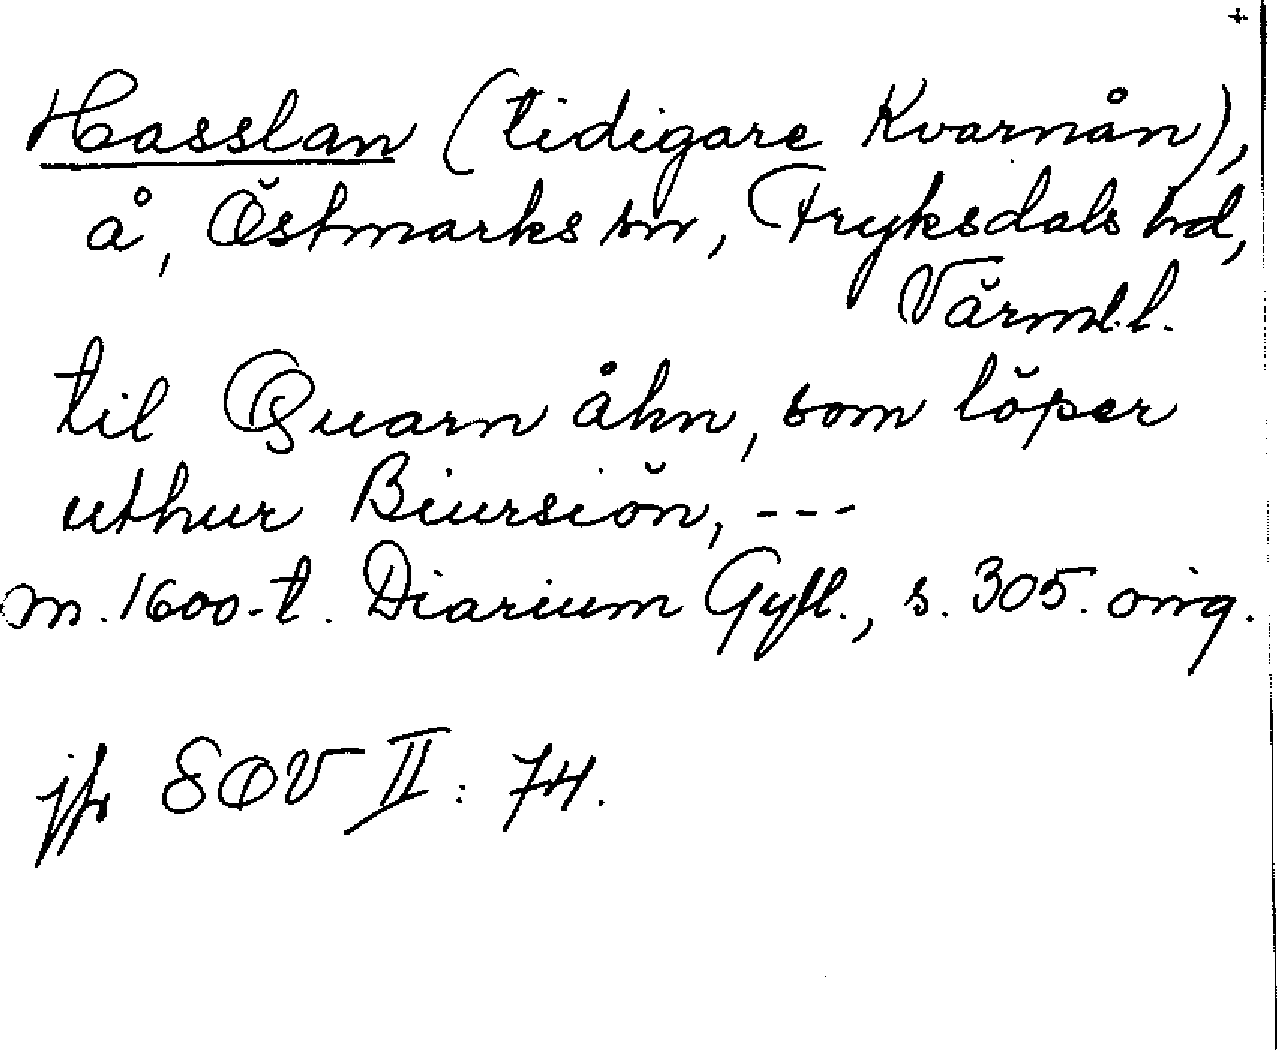 +
Hasslan (tidigare Kvarnån),
å, Östmarks sn, Fryksdals hd,
Värml.l.
til Quarn åhn, som löper
uthur Biursiön, ---
m. 1600-t. Diarium Gyll., s. 305. omg.
jfr SOV II: 74.